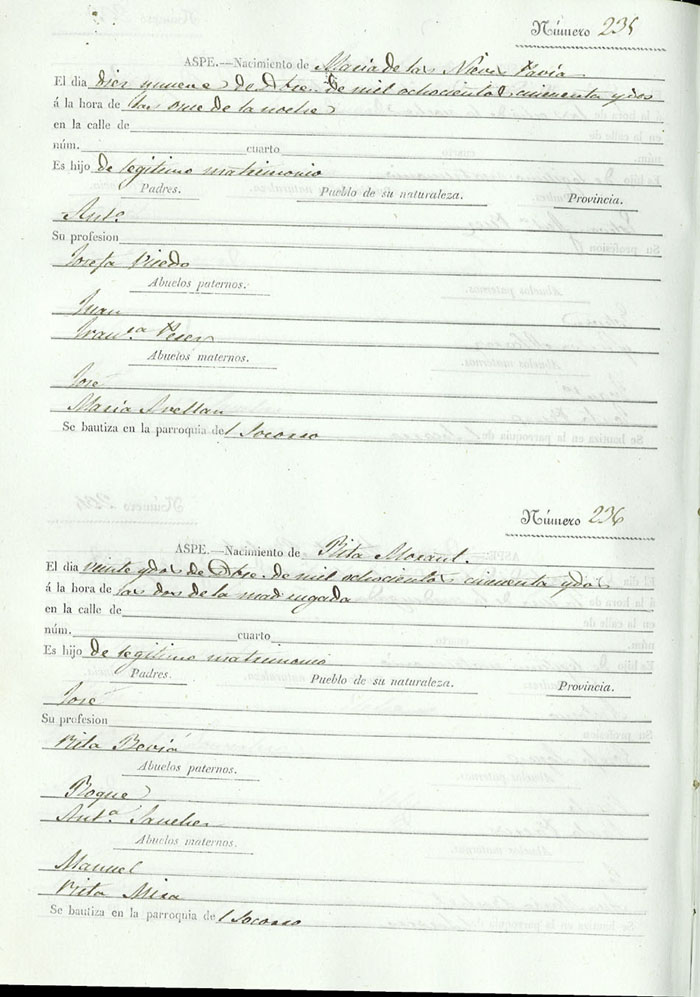 Número 235
ASPE.—Nacimiento de Maria de las Nieves Pavia
El dia diez y nueve de Dbre. de mil ochocientos cincuenta y dos
á la hora de las once de la noche
en la calle de
núm. cuarto
Es hijo de legitimo matrimonio
Padres. Pueblo de su naturaleza. Provincia.
Anto.
Su profesion
Josefa
Abuelos paternos.
Juan
Franca. Perez
Abuelos maternos.
José
Maria Avellan
Se bautiza en la parroquia del Socorro
Número 236
ASPE.—Nacimiento de Rita Morant.
El dia veinte y dos de Dbre. de mil ochocientos cincuenta y dos
á la hora de las dos de la madrugada
en la calle de
núm. cuarto
Es hijo de legitimo matrimonio
Padres. Pueblo de su naturaleza. Provincia.
José
Su profesion
Rita Beviá
Abuelos paternos.
Roque
Anta. Sanchez
Abuelos maternos.
Manuel
Rita Mira
Se bautiza en la parroquia del Socorro